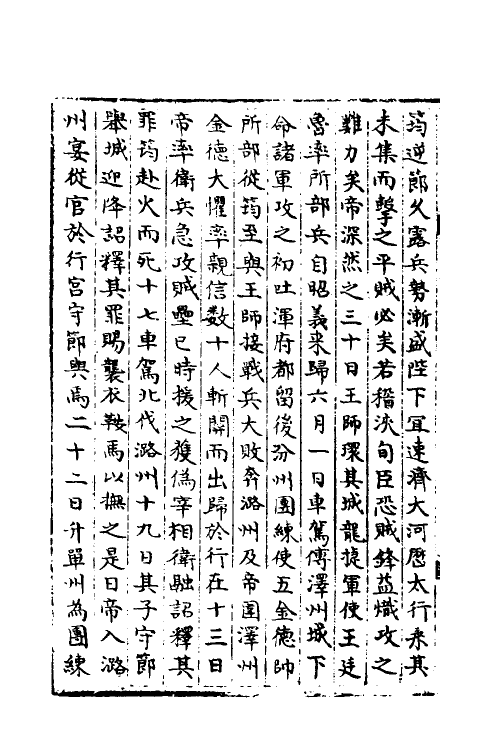 筠逆節久露兵勢漸盛陛下宜速濟大河歷太行乘其
未集而擊之平賊必矣若稽浹旬臣恐賊鋒益熾攻之
難力矣帝深然之三十日王師環其城龍㨗軍使王廷
魯率所部兵自昭義来歸六月一日車駕傅澤州城下
命諸軍攻之初吐渾府都留後汾州團練使王金德帥
所部從筠至與王師接戰兵大敗奔潞州及帝圍澤州
金德大懼率親信数十人斬關而出歸於行在十三日
帝率衛兵急攻賊壘巳時援之獲偽宰相衛融詔釋其
罪筠赴火而死十七車駕北伐潞州十九日其子守節
舉城迎降詔釋其罪賜襲衣鞍馬以撫之是日帝入潞
州宴從官於行宮守節與焉二十二日升單州為團練